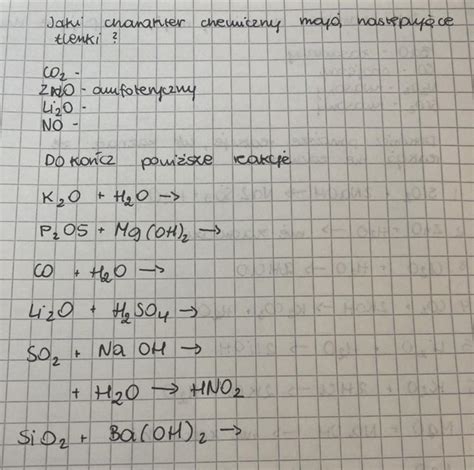 Jaki charakter chemiczny mają następujące
tlenki ?
CO₂ -
ZnO - amfoteryczny
Li₂O -
NO -
Dokończ poniższe reakcje
K₂O + H₂O →
P₂O5 + Mg(OH)₂ →
CO + H₂O →
Li₂O + H₂SO₄ →
SO₂ + NaOH →
+ H₂O → HNO₂
SiO₂ + Ba(OH)₂ →